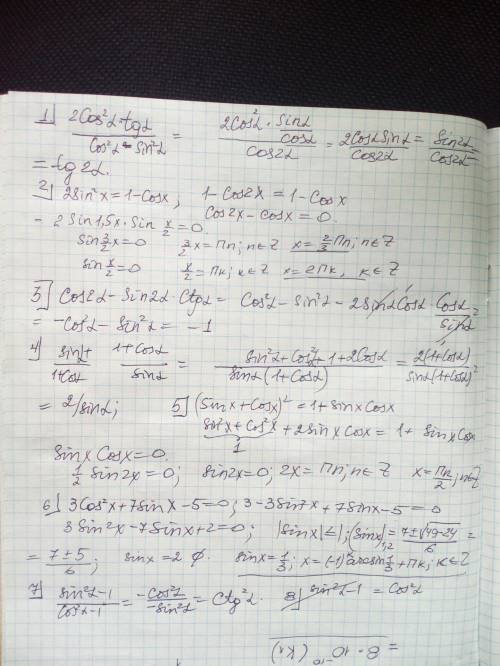 1] 2Cos²α·tgα / Cos²α - Sin²α = 2Cos²α · Sinα/Cosα / Cos2α = 2CosαSinα / Cos2α = Sin2α / Cos2α
= tg2α.
2] 2Sin²x = 1-Cosx, 1-Cos2x = 1-Cosx
Cos2x-Cosx = 0.
- 2Sin1,5x·Sin x/2 = 0.
Sin 3/2 x = 0 3/2 x = Πn; n∈Z x = 2/3 Πn; n∈Z
Sin x/2 = 0 x/2 = Πk; k∈Z x = 2Πk, k∈Z
3] Cos2α - Sin2α · Ctgα = Cos²α - Sin²α - 2Sinα Cosα · Cosα/Sinα =
= -Cos²α - Sin²α = -1
4] Sinα/1+Cosα + 1+Cosα/Sinα = Sin²α+Cos²α+1+2Cosα / Sinα(1+Cosα) = 2(1+Cosα) / Sinα(1+Cosα) =
= 2/Sinα; 5] (Sinx+Cosx)² = 1+SinxCosx
Sin²x+Cos²x + 2SinxCosx = 1+ SinxCosx
1
SinxCosx = 0.
1/2 Sin2x = 0; Sin2x=0; 2x = Πn; n∈Z x = Πn/2; n∈Z
6] 3Cos²x+7Sinx-5=0; 3-3Sin²x+7Sinx-5=0
3Sin²x-7Sinx+2=0; |Sinx|≤1; (Sinx)1,2 = 7±√49-24 / 6 =
= 7±5/6; Sinx=2 ∅. Sinx=1/3; x=(-1)ᵏarcsin 1/3 +Πk; k∈Z
7] Sin²α-1 / Cos²α-1 = -Cos²α / -Sin²α = Ctg²α. 8] Sin²α-1 = Cos²α